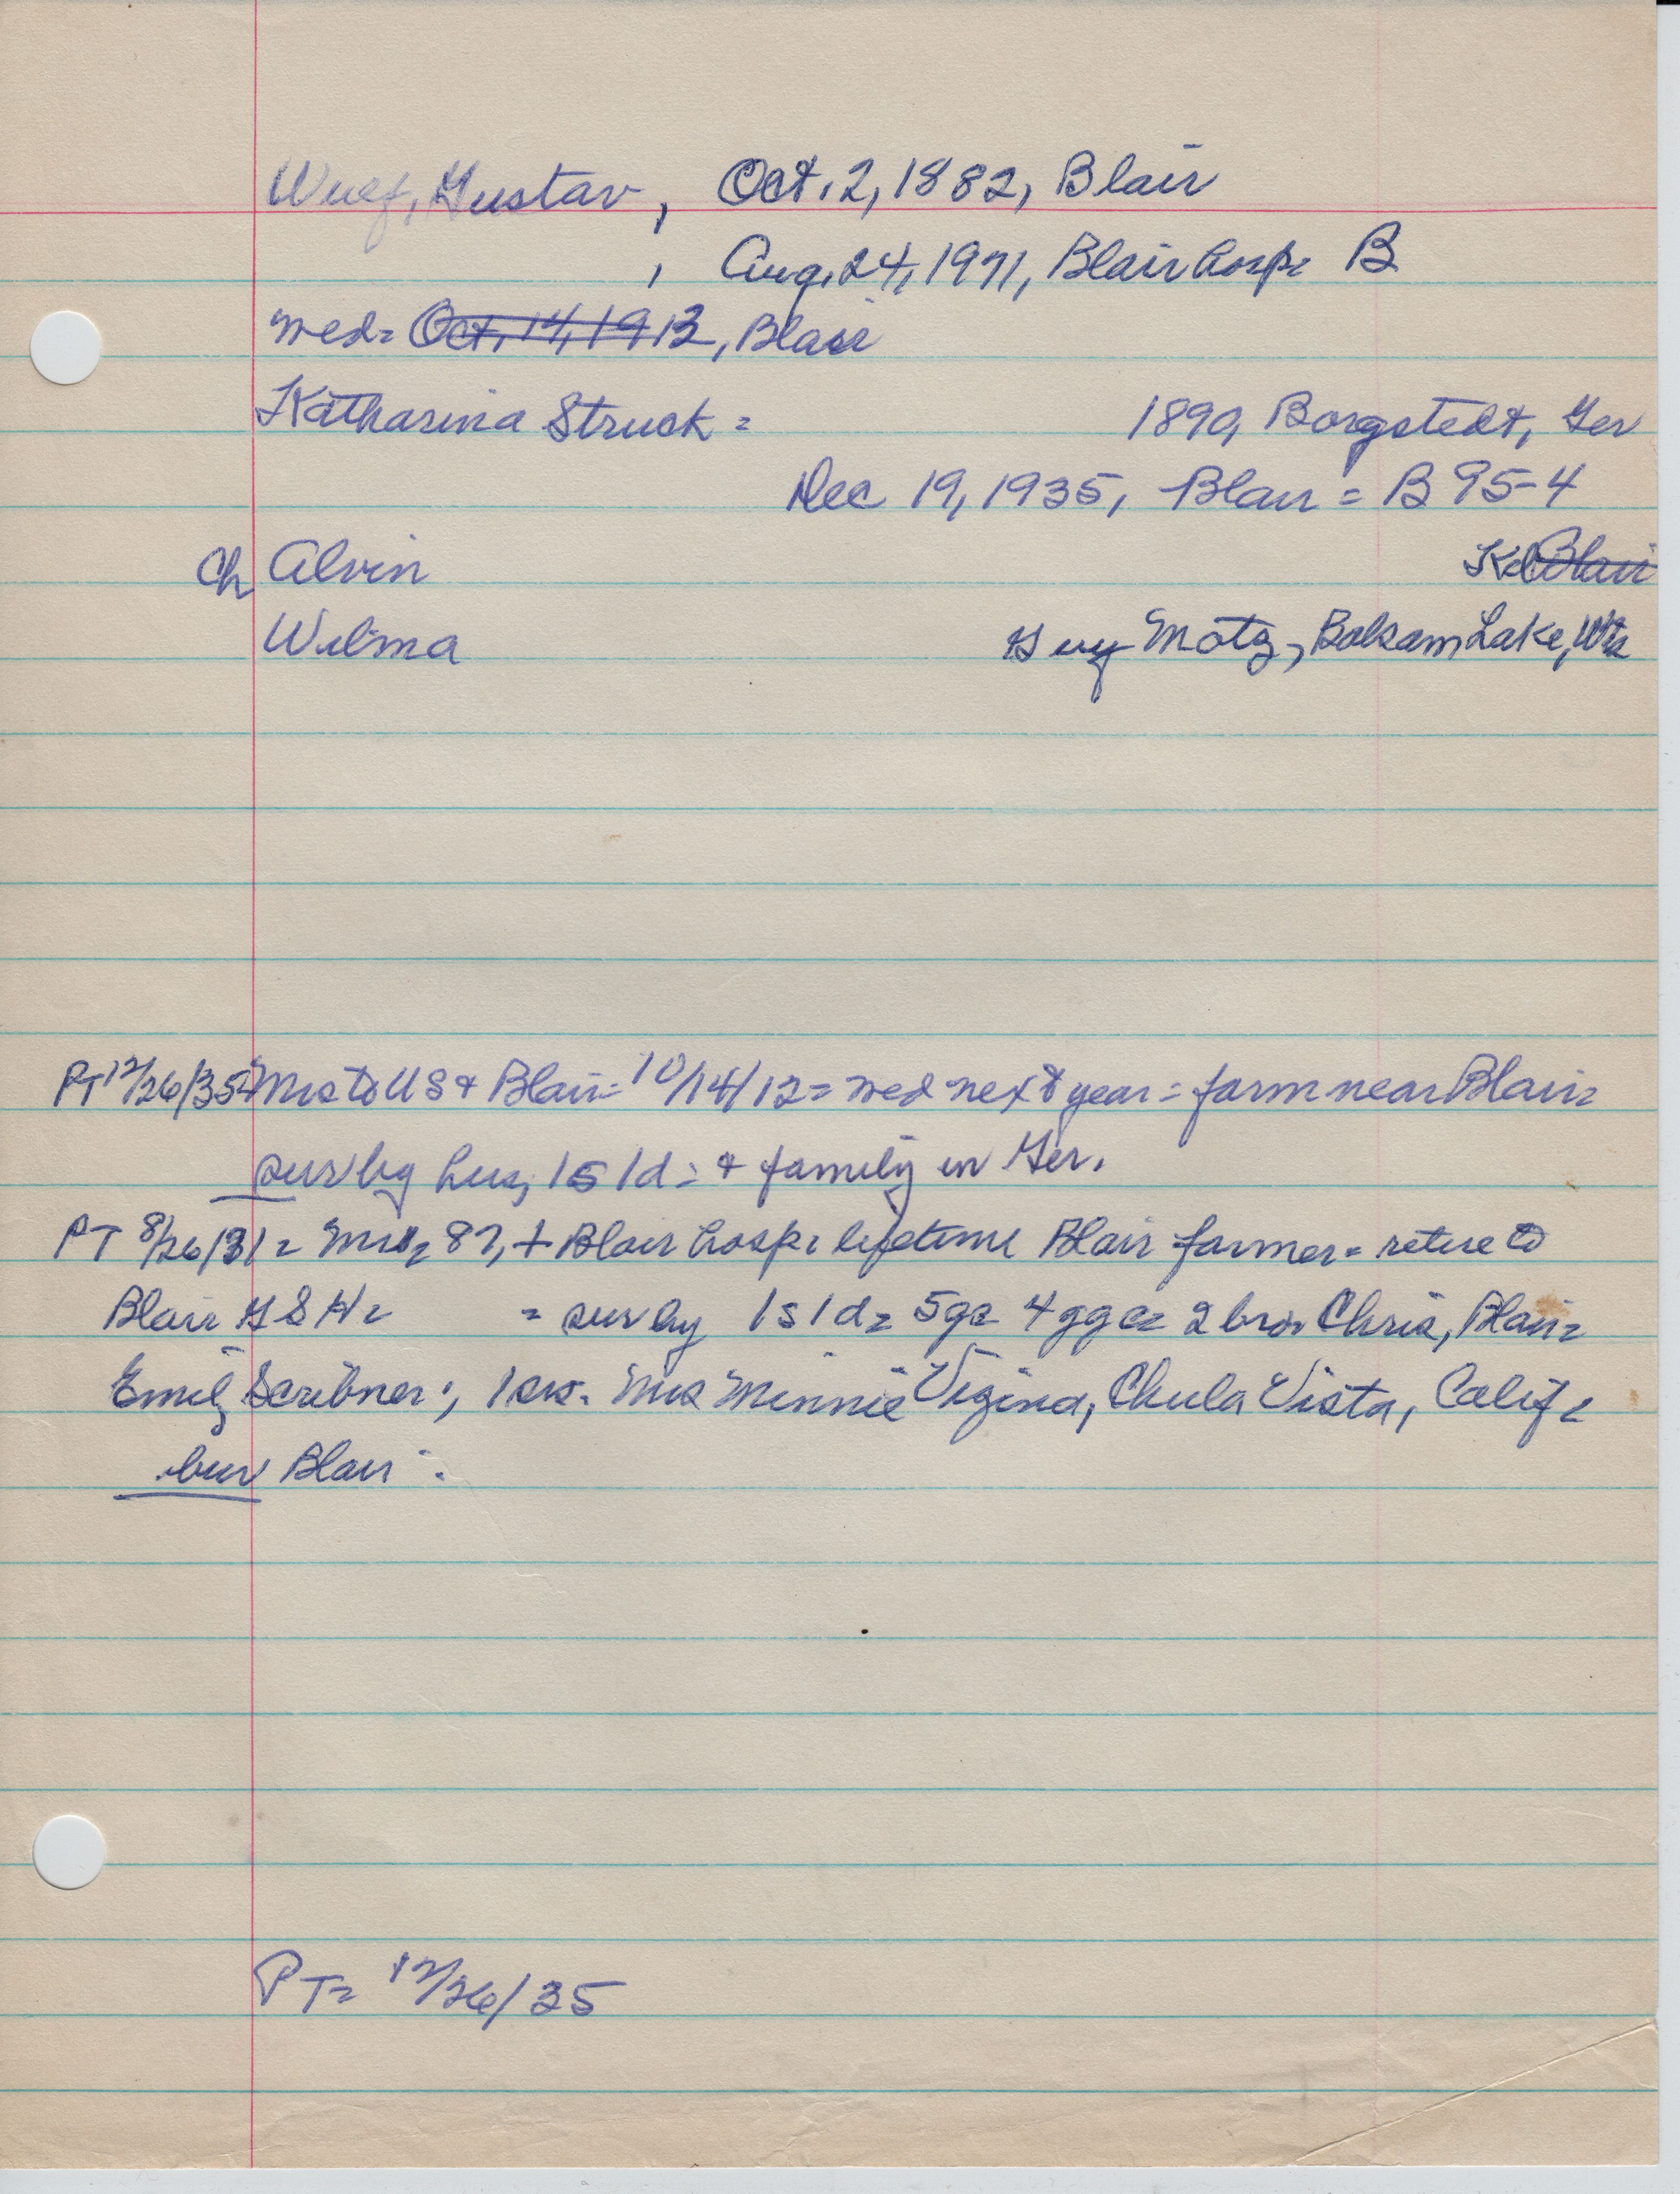 Wulf, Gustav, Oct. 2, 1882, Blair
, Aug. 24, 1971, Blair hosp= B
wed= Oct. 14, 1913, Blair
Katharina Struck = 1890, Borgstedt, Ger
Dec 19, 1935, Blair = B 95-4
Ch Alvin Blair
Wilma Guy Motz, Balsam Lake, Wis
PT 12/26/35= Mrs to US & Blair= 10/14/12= wed next year= farm near Blair=
sur by hus, 1s 1d= & family in Ger.
PT 8/26/ = + Blair hosp= lifetime Blair farmer= retire to
Blair = sur by 1s 1d= 5gc 4ggc= 2 bro= Chris, Blair=
Emil, Scribner; 1 sis. Mrs Minnie Chula Vista, Calif=
bur Blair.
PT= 12/26/35